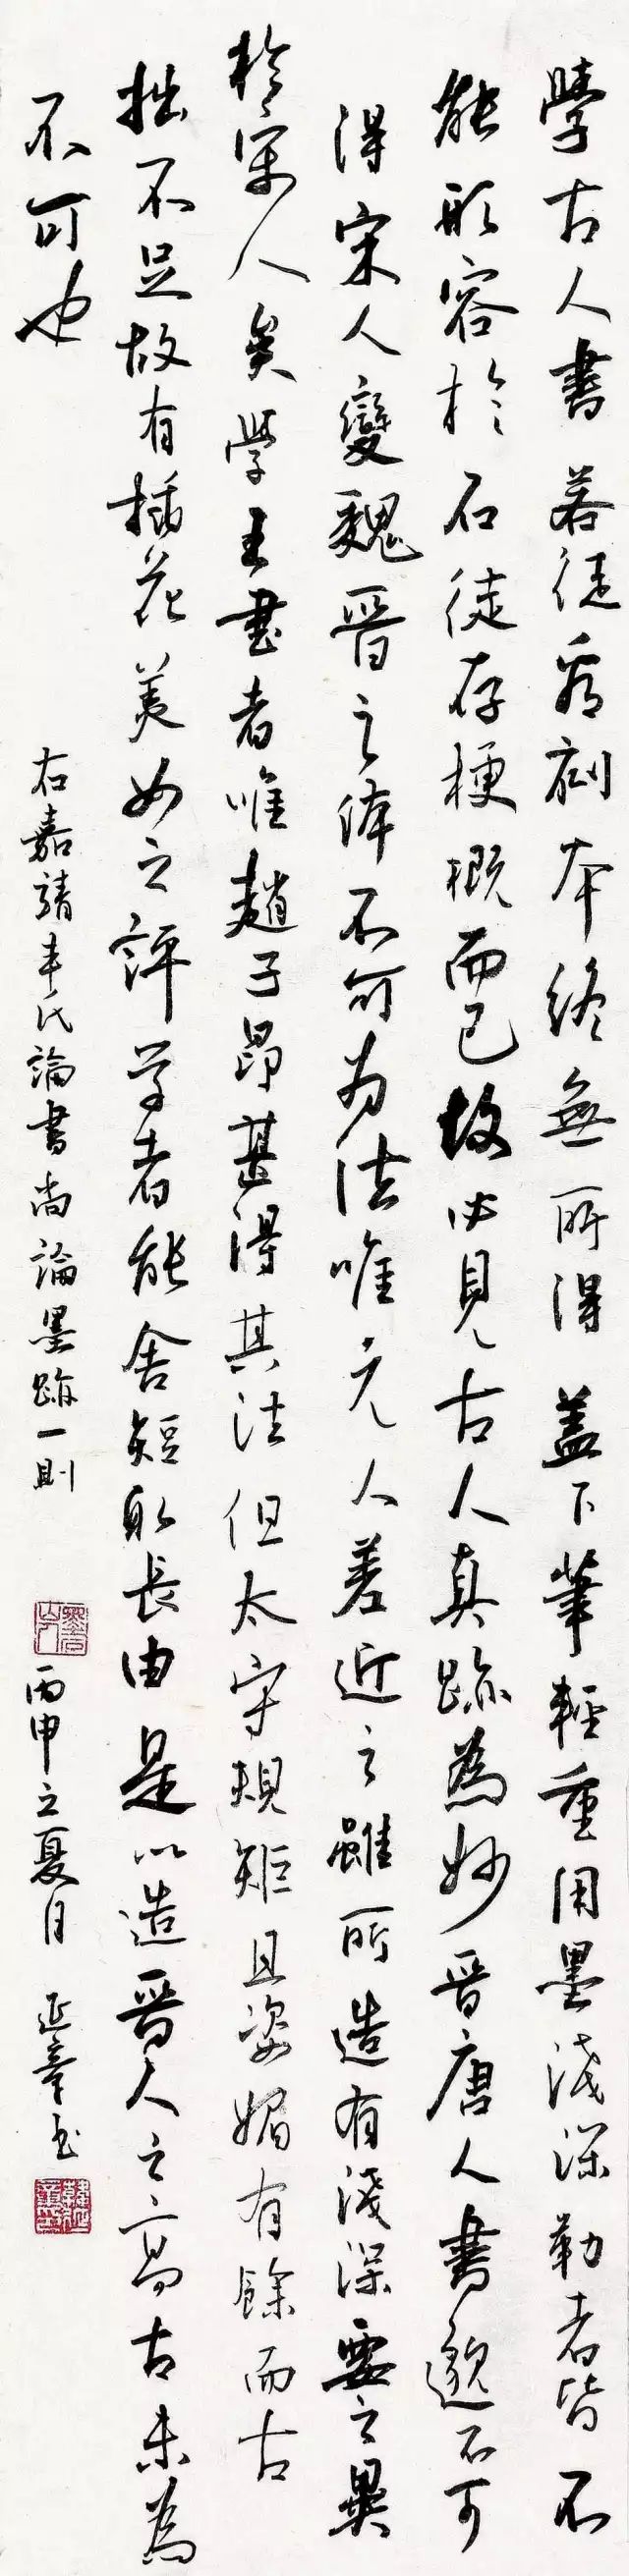 學古人書若徒看刻本終無所得蓋下筆輕重用墨淺深勒者皆不
能形容於石徒存梗概而已故必見古人真跡為妙晋唐人書邈不可
得宋人變魏晋之体不可为法唯元人差近之雖所造有淺深要之異
於宋人矣學王書者唯趙子昂甚得其法但太守規矩且姿媚有餘而古
拙不足故有插花美女之評学者能舍短取長由是以造晋人之高古未為
不可也
右嘉靖丰氏論書尚論墨跡一則
丙申之夏月 延章书